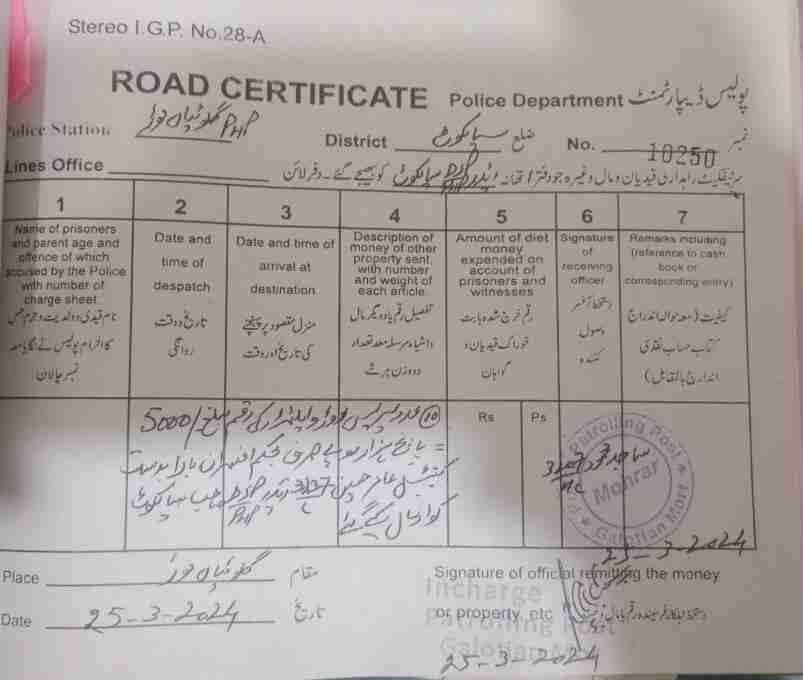 Stereo I.G.P. No.28-A
ROAD CERTIFICATE Police Department پولیس ڈیپارٹمنٹ
Police Station گلوٹیاں موڑ PHP District سیالکوٹ ضلع No. 10250 نمبر
Lines Office سرٹیفکیٹ راہداری قیدیان و مال وغیرہ جو دفتر / تھانہ ریڈر DSP PHP سیالکوٹ کو بھیجے گئے۔ دفتر لائن
1 2 3 4 5 6 7
Name of prisoners and parent age and offence of which accused by the Police with number of charge sheet.
نام قیدی و ولدیت و جرم جس کا الزام پولیس نے لگایا معہ نمبر چالان
Date and time of despatch
تاریخ و وقت روانگی
Date and time of arrival at destination.
منزل مقصود پر پہنچنے کی تاریخ اور وقت
Description of money of other property sent, with number and weight of each article.
تفصیل رقم یا دیگر مال و اشیاء مرسلہ معہ تعداد و وزن ہر شے
Amount of diet money expended on account of prisoners and witnesses
رقم خرچ شدہ بابت خوراک قیدیان و گواہان
Signature of receiving officer
دستخط آفیسر وصول کنندہ
Remarks including (reference to cash book or corresponding entry)
کیفیت (معہ حوالہ اندراج کتاب حساب نقدی اندراج بالمقابل)
Rs Ps
کی رقم مبلغ /5000
= پانچ ہزار روپے صرف بحکم افسران بالا بدست
کنسٹیبل عامر حسین 3137/C ریڈر DSP PHP صاحب سیالکوٹ
کو ارسال کی گئی ہے
ساجد HC
Patrolling Post
Mohrar
Galotian Mort
25-3-2024
Place گلوٹیاں موڑ مقام
Signature of official remitting the money
Date 25-3-2024 تاریخ
or property, etc دستخط اہلکار فرستندہ رقم یا مال
Incharge
Patrolling Post
Galotian Mort
25-3-2024